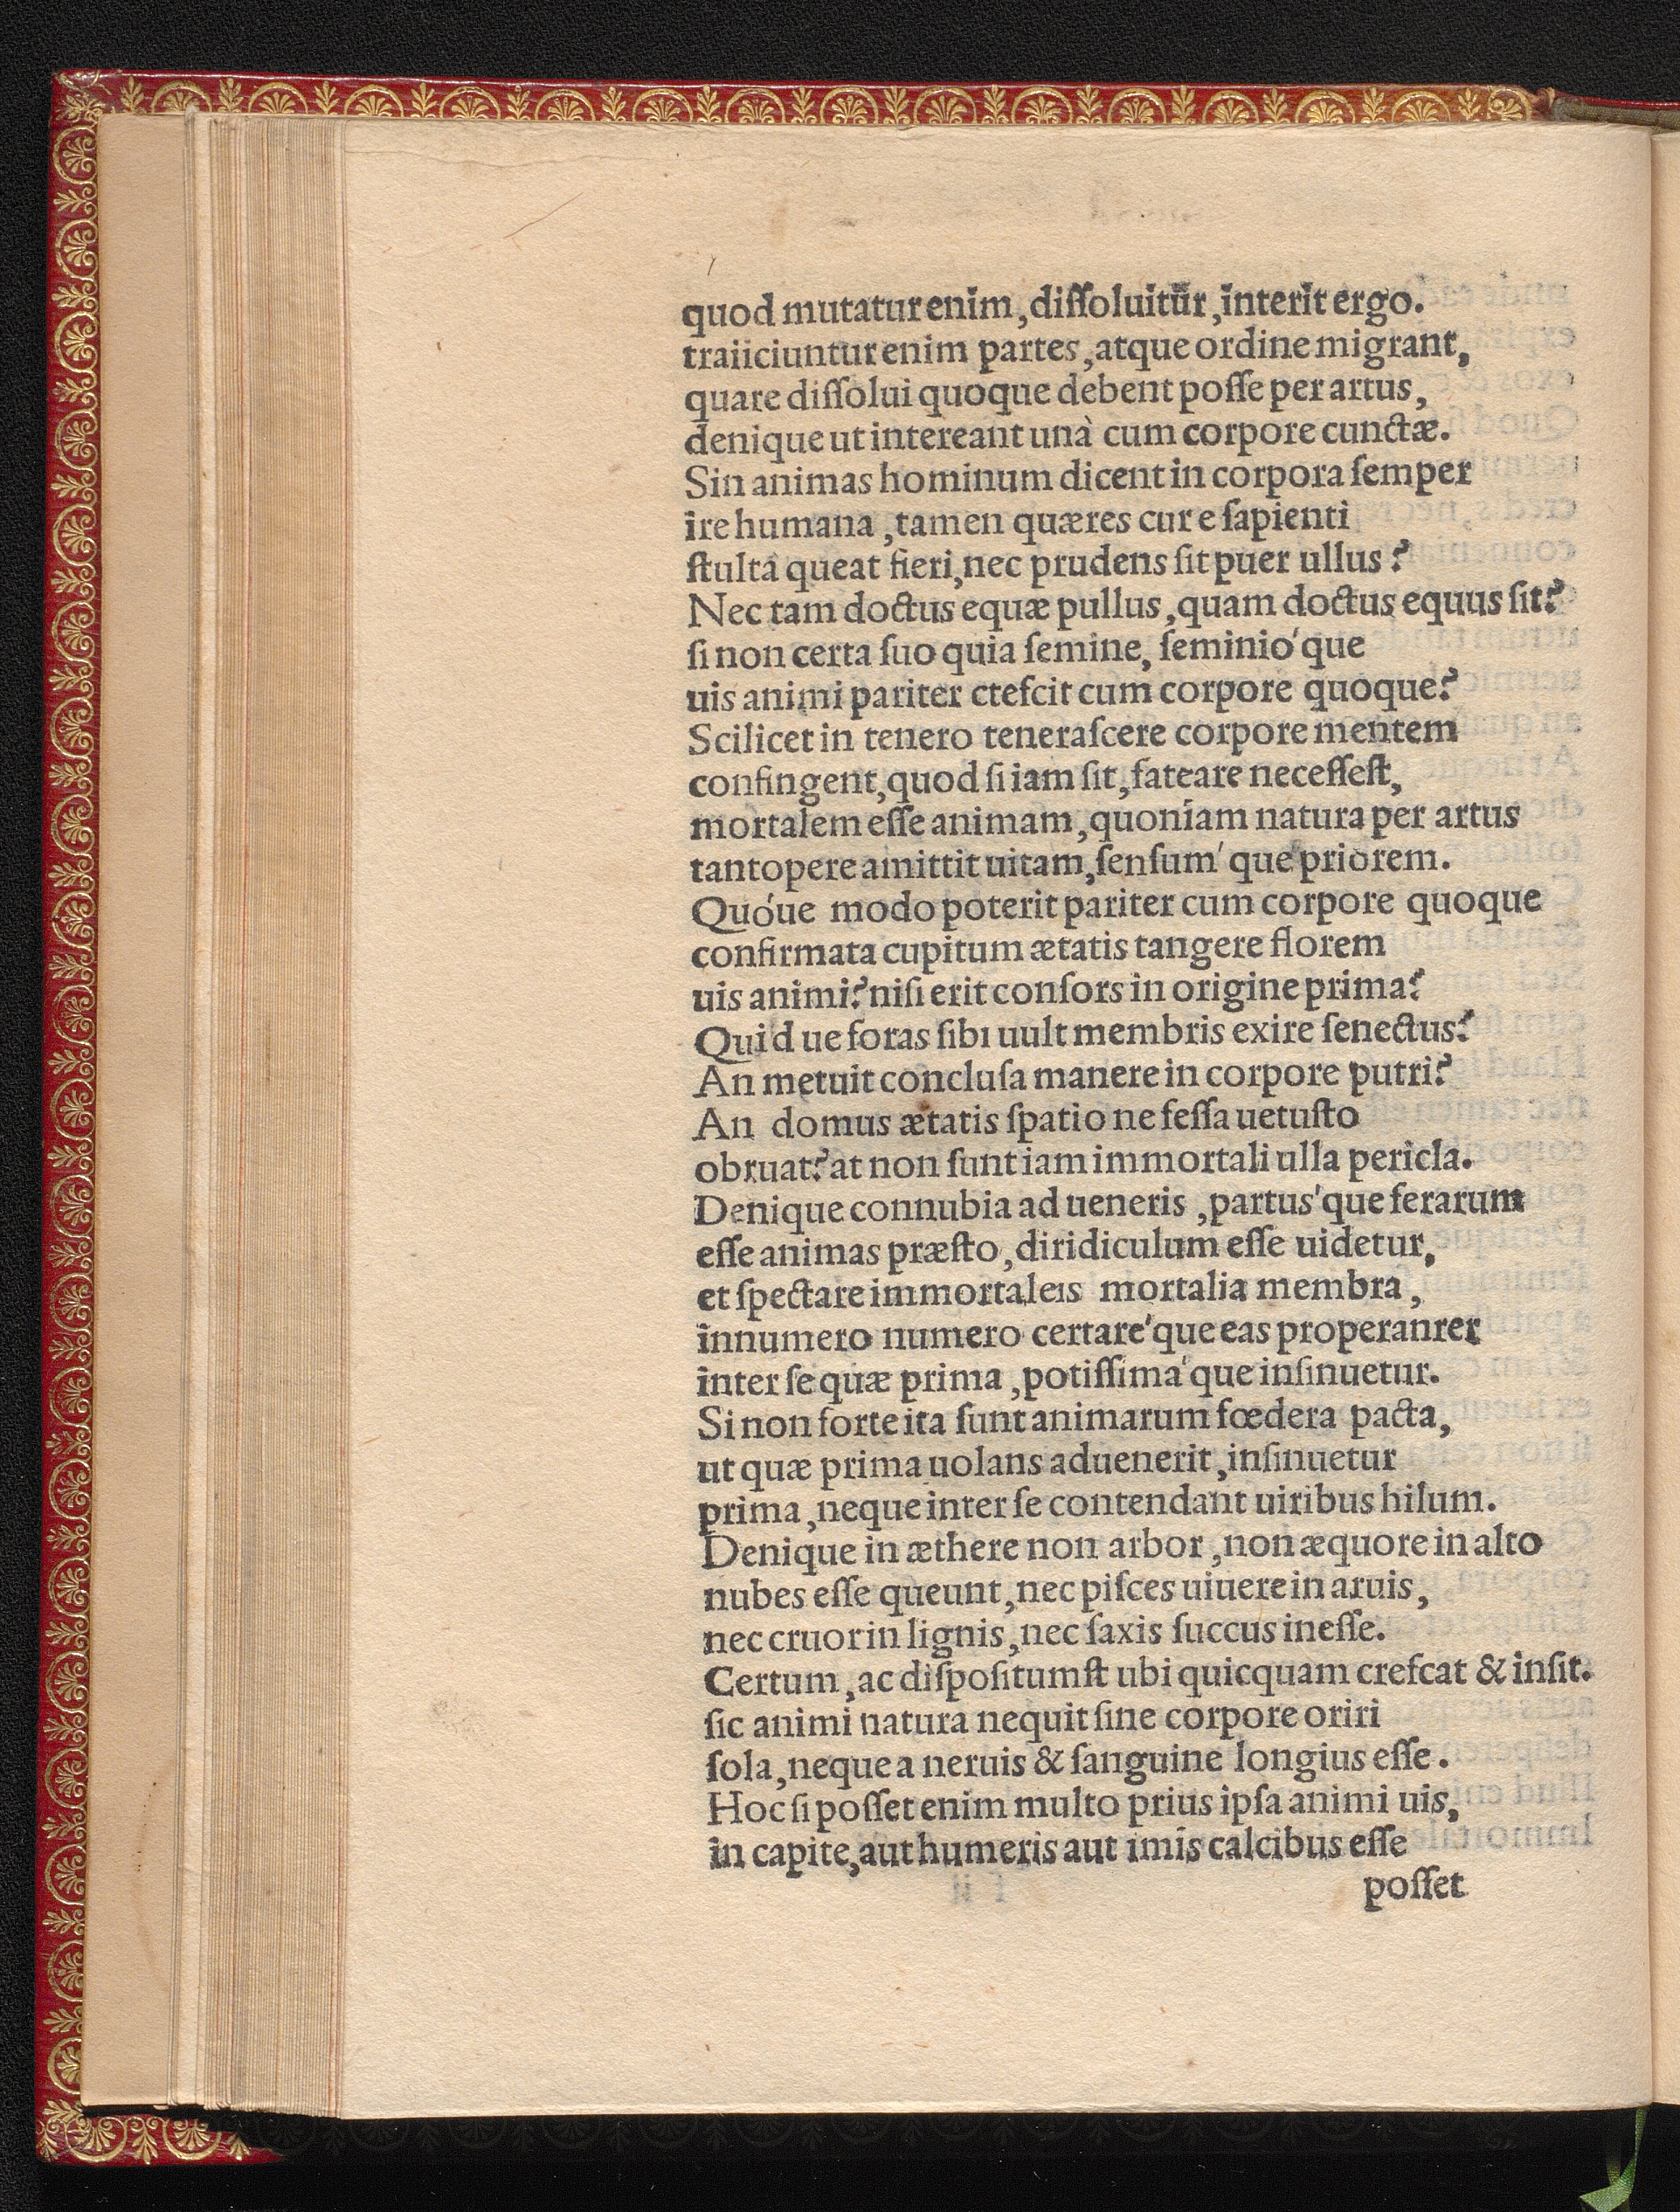 quod mutatur enim, diſſoluitur, interit ergo.
traiiciuntur enim partes, atque ordine migrant,
quare diſſolui quoque debent poſſe per artus,
denique ut intereant unà cum corpore cunctæ.
Sin animas hominum dicent in corpora ſemper
ire humana, tamen quæres cur e ſapienti
ſtulta queat fieri, nec prudens ſit puer ullus?
Nec tam doctus equæ pullus, quam doctus equus ſit?
ſi non certa ſuo quia ſemine, ſeminio'que
uis animi pariter cteſcit cum corpore quoque?
Scilicet in tenero teneraſcere corpore mentem
confingent, quod ſi iam ſit, fateare neceſſeſt,
mortalem eſſe animam, quoniam natura per artus
tantopere amittit uitam, ſenſum'que priorem.
Quóue modo poterit pariter cum corpore quoque
confirmata cupitum ætatis tangere florem
uis animi? niſi erit conſors in origine prima?
Quid ue foras ſibi uult membris exire ſenectus?
An metuit concluſa manere in corpore putri?
An domus ætatis ſpatio ne feſſa uetuſto
obruat? at non ſunt iam immortali ulla pericla.
Denique connubia ad ueneris, partus'que ferarum
eſſe animas præſto, diridiculum eſſe uidetur,
et ſpectare immortaleis mortalia membra,
innumero numero certare'que eas properanrer
inter ſe quæ prima, potiſſima'que inſinuetur.
Si non forte ita ſunt animarum fœdera pacta,
ut quæ prima uolans aduenerit, inſinuetur
prima, neque inter ſe contendant uiribus hilum.
Denique in æthere non arbor, non æquore in alto
nubes eſſe queunt, nec piſces uiuere in aruis,
nec cruor in lignis, nec ſaxis ſuccus ineſſe.
Certum, ac diſpoſitumſt ubi quicquam creſcat & inſit.
ſic animi natura nequit ſine corpore oriri
ſola, neque a neruis & ſanguine longius eſſe.
Hoc ſi poſſet enim multo prius ipſa animi uis,
in capite, aut humeris aut imis calcibus eſſe
poſſet